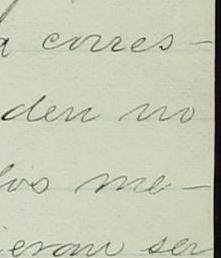 a corres-
den no
los me-
eran ser